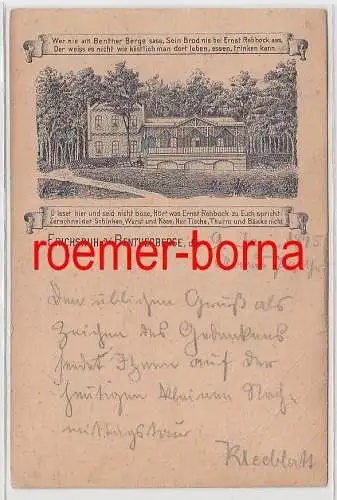 Wer nie am Benther Berge sass, Sein Brod nie bei Ernst Rehbock ass,
Der weiss es nicht wie köstlich man dort leben, essen, trinken kann.
O lasset hier und seid nicht böse, Hört was Ernst Rehbock zu Euch spricht:
Zerschneidet Schinken, Wurst und Käse, Nur Tische, Thurm und Bänke nicht.
roemer-borna
Den üblichen Gruß als
Zeichen des Gedenkens
sendet Ihnen auf der
heutigen kleinen Nach-
mittagstour
Kleeblatt